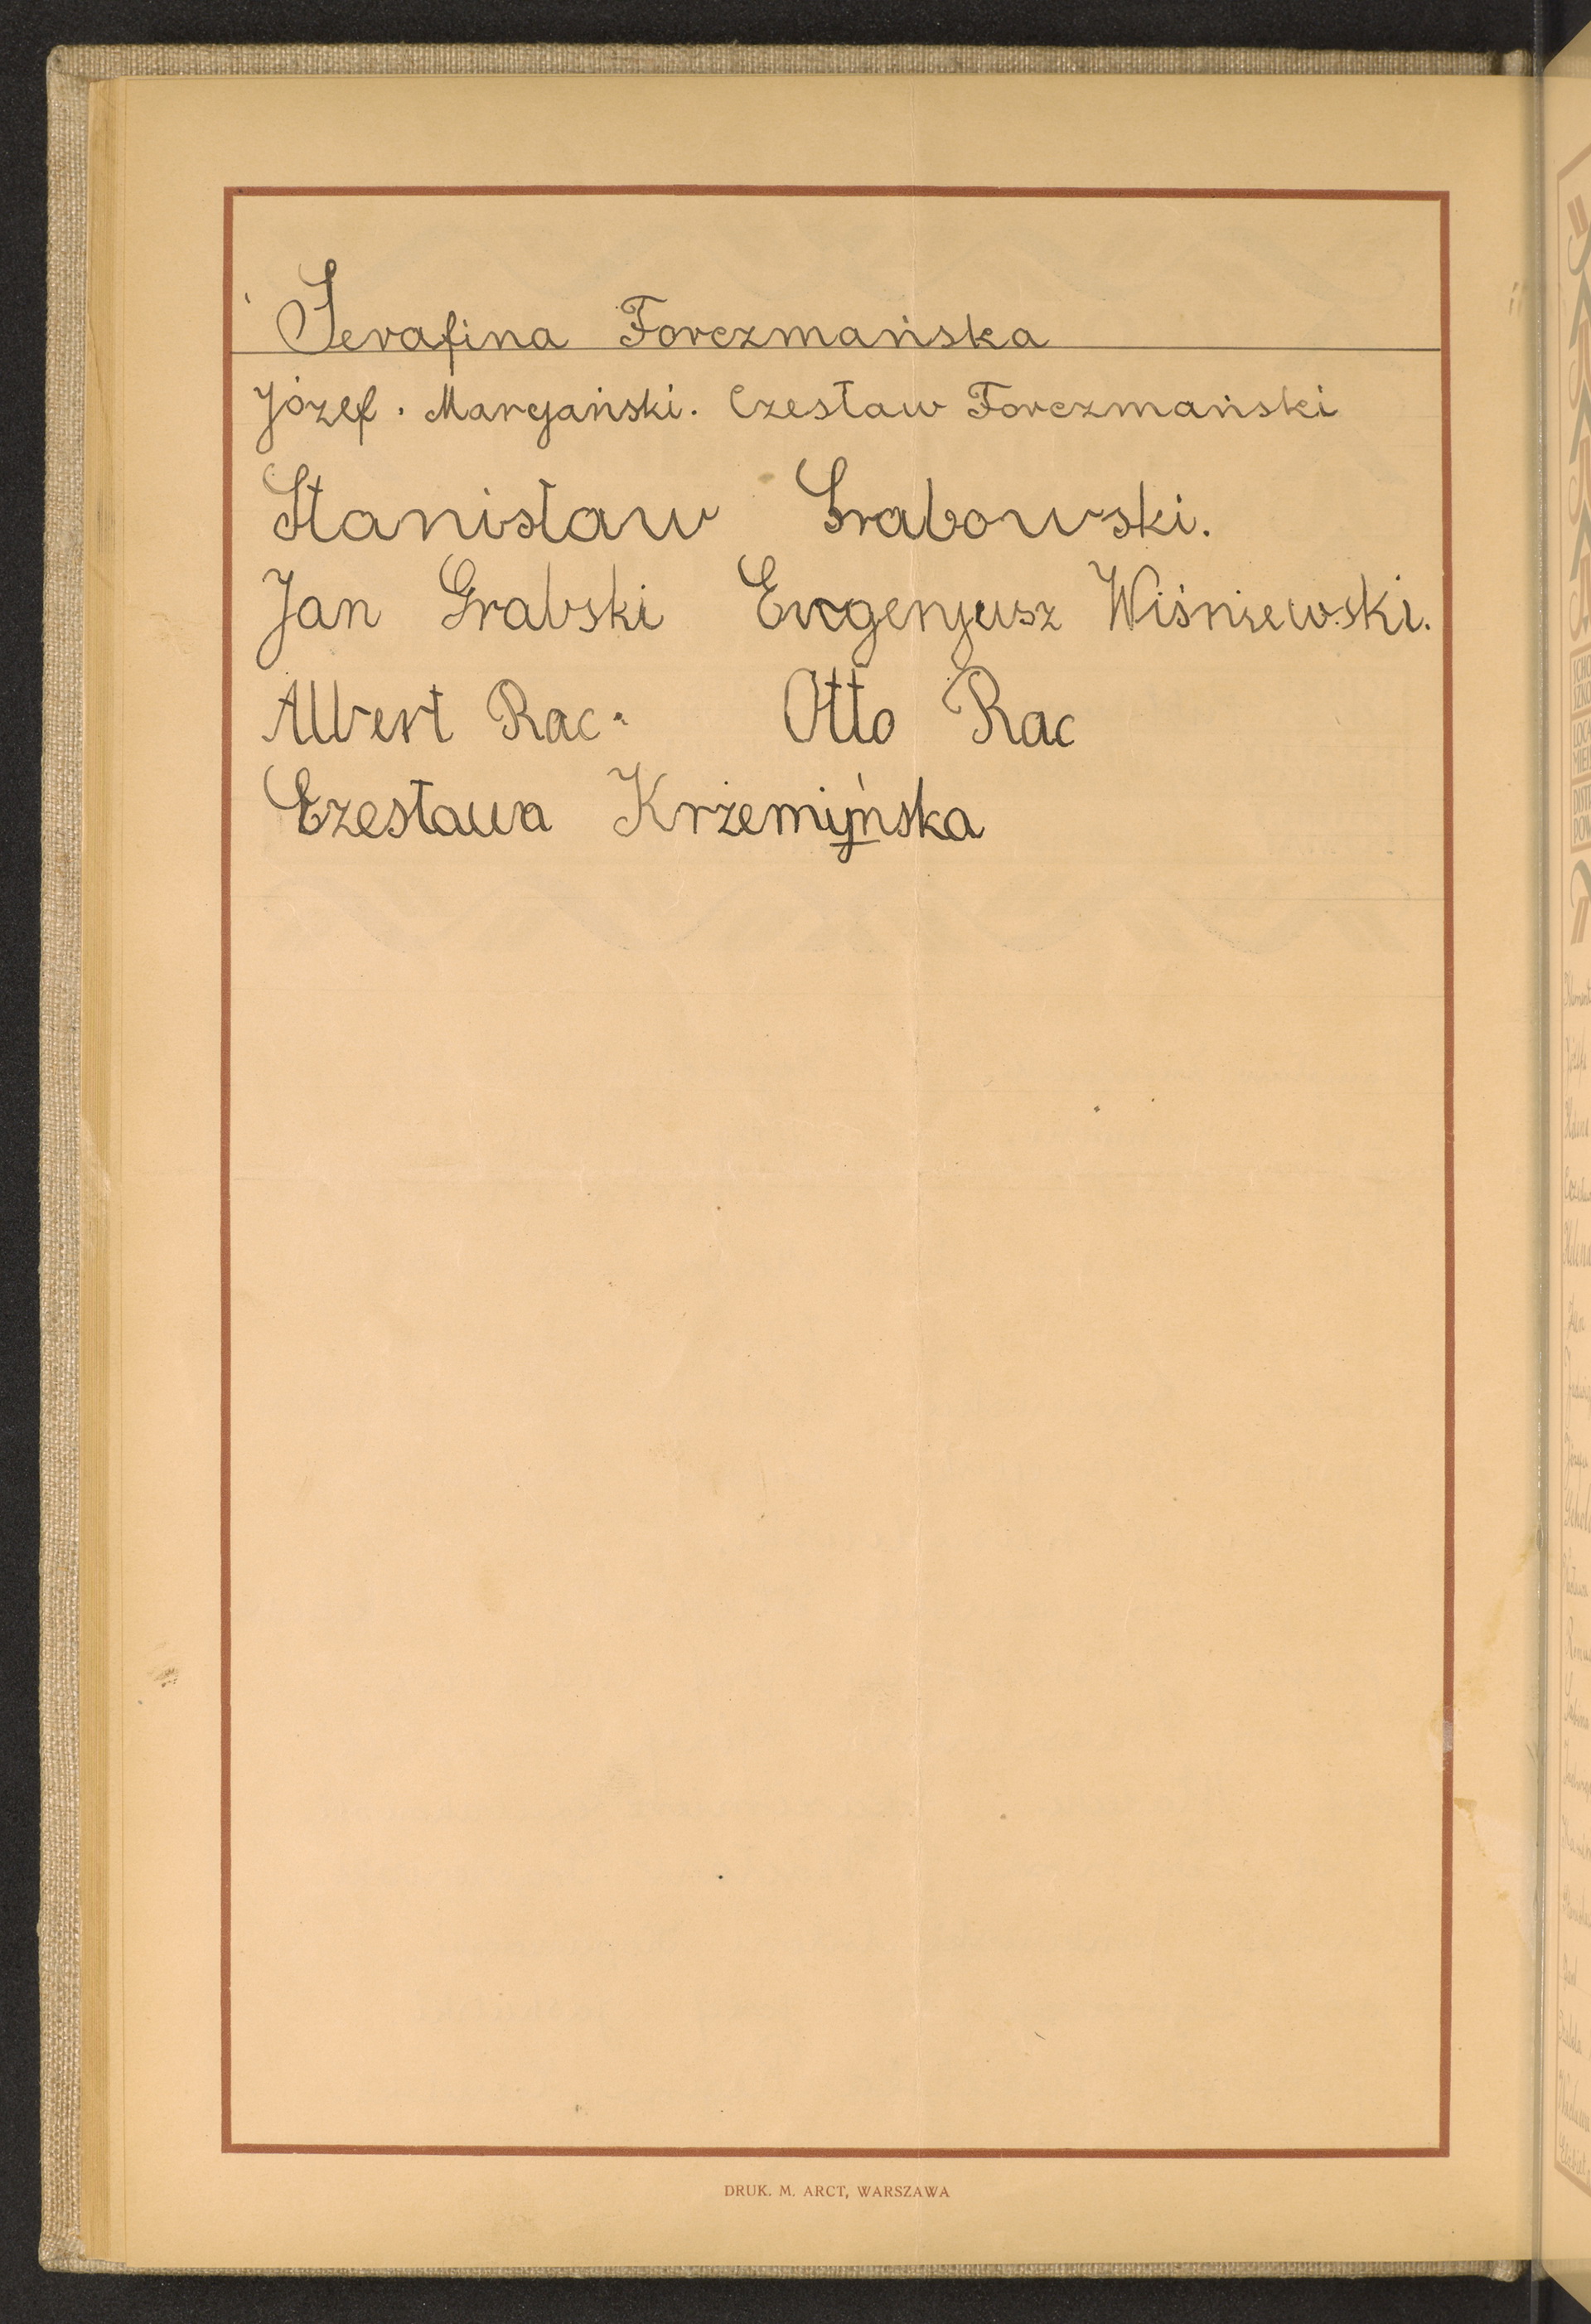 Serafina Forczmańska
Józef. Maryański. Czesław Forczmański
Stanisław Grabowski.
Jan Grabski Eugenjusz Wiśniewski.
Albert Rac. Otto Rac
Czesława Krzemińska
DRUK. M. ARCT, WARSZAWA